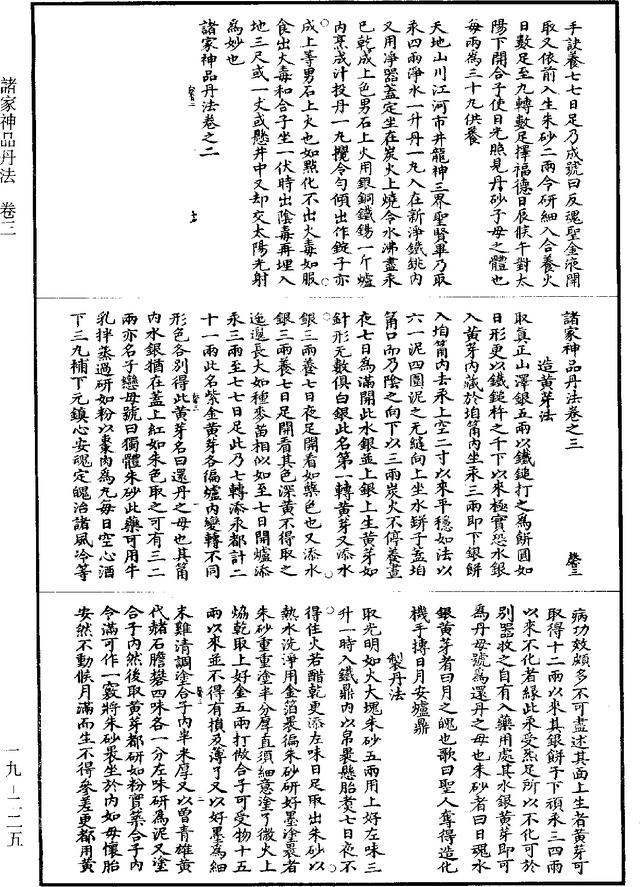 手訣養七七日足乃成號曰返魂聖金液開
取又依前入生朱砂二兩令研細入合養火
日數足至九轉數足擇福德日辰候午對太
陽下開合子使日光照見丹砂子母之體也
每兩為三十九供養
天地山川江河市井龍神三界聖賢畢乃取
汞四兩淨水一升丹一丸入在新淨鐵銚內
又用淨器蓋定坐在炭火上燒令水沸盡汞
已乾成上色男石上火用銀銅鐵錫一斤爐
內烹成汁投丹一丸攪令勻傾出作錠子亦
成上等男石上火也如點化不出火毒如服
食出火毒和合子坐一伏時出陰毒再埋入
地三尺或一丈或懸井中又却交太陽光射
為妙也
諸家神品丹法卷之二
諸家神品丹法卷之三
卷三
造黃芽法
取真正山澤銀五兩以鐵鎚打之為餅圓如
日形更以鐵鎚杵之千下以來極實恐水銀
入黃芽內藏於垍筩內坐汞三兩即下銀餅
入垍筩內去汞上空二寸以來平穩如法以
六一泥四圍泥之无縫向上坐水缾子蓋垍
筩口而乃陰之向下以三兩炭火不停養晝
夜七日為滿開此水銀並上銀上生黃芽如
針形无數俱白銀此名第一轉黃芽又添水
銀三兩養七日夜足開看如藥色也又添水
銀三兩養七日足開看其色深黃不得取之
邊長大如種麥苗相似如至七日開爐添
汞三兩至七七日足此乃七轉添汞都計二
十一兩此名紫金黃芽各徧爐內變轉不同
形色各別得此黃芽名曰還丹之母也其筩
內水銀猶在蓋上紅如朱色取之可有三二
兩亦名子戀母號曰獨體朱砂此藥可用牛
乳拌蒸過研如粉以棗肉為丸每日空心酒
下三丸補下元鎮心安魂定魄治諸風冷等
病功效頗多不可盡述其面上生者黃芽可
取得十二兩以來其銀餅子下頑汞三四兩
以來不化者緣此汞受炁足所以不化可於
別器收之自有入藥用處其水銀黃芽即可
為丹母號為還丹之母也朱砂者日魂水
銀黃芽者曰月之魄也歌曰聖人奪得造化
機手搏日月安爐鼎
製丹法
取光明如火大塊朱砂五兩用上好左味三
升一時入鐵鼎內以帛裹懸胎煑七日夜不
得住火若醋乾更添左味日足取出朱砂以
熱水洗淨用金箔裹徧朱砂研好墨塗裹者
朱砂重重塗半分厚直須細意塗了微火上
焰乾取上好金五兩打做合子可受物十五
兩以來並不得有損及薄了又以好墨為細
末雞清調塗合子內半米厚又以曾青雄黃
代赭石膽礬四味各一分左味研為泥又塗
合子內然後取黃芽都研如粉實築合子內
令滿可作一竅將朱砂裹坐於內如母懷胎
安然不動候月滿而生不得參差更都用黃
諸家神品丹法 卷三
一九－二二五